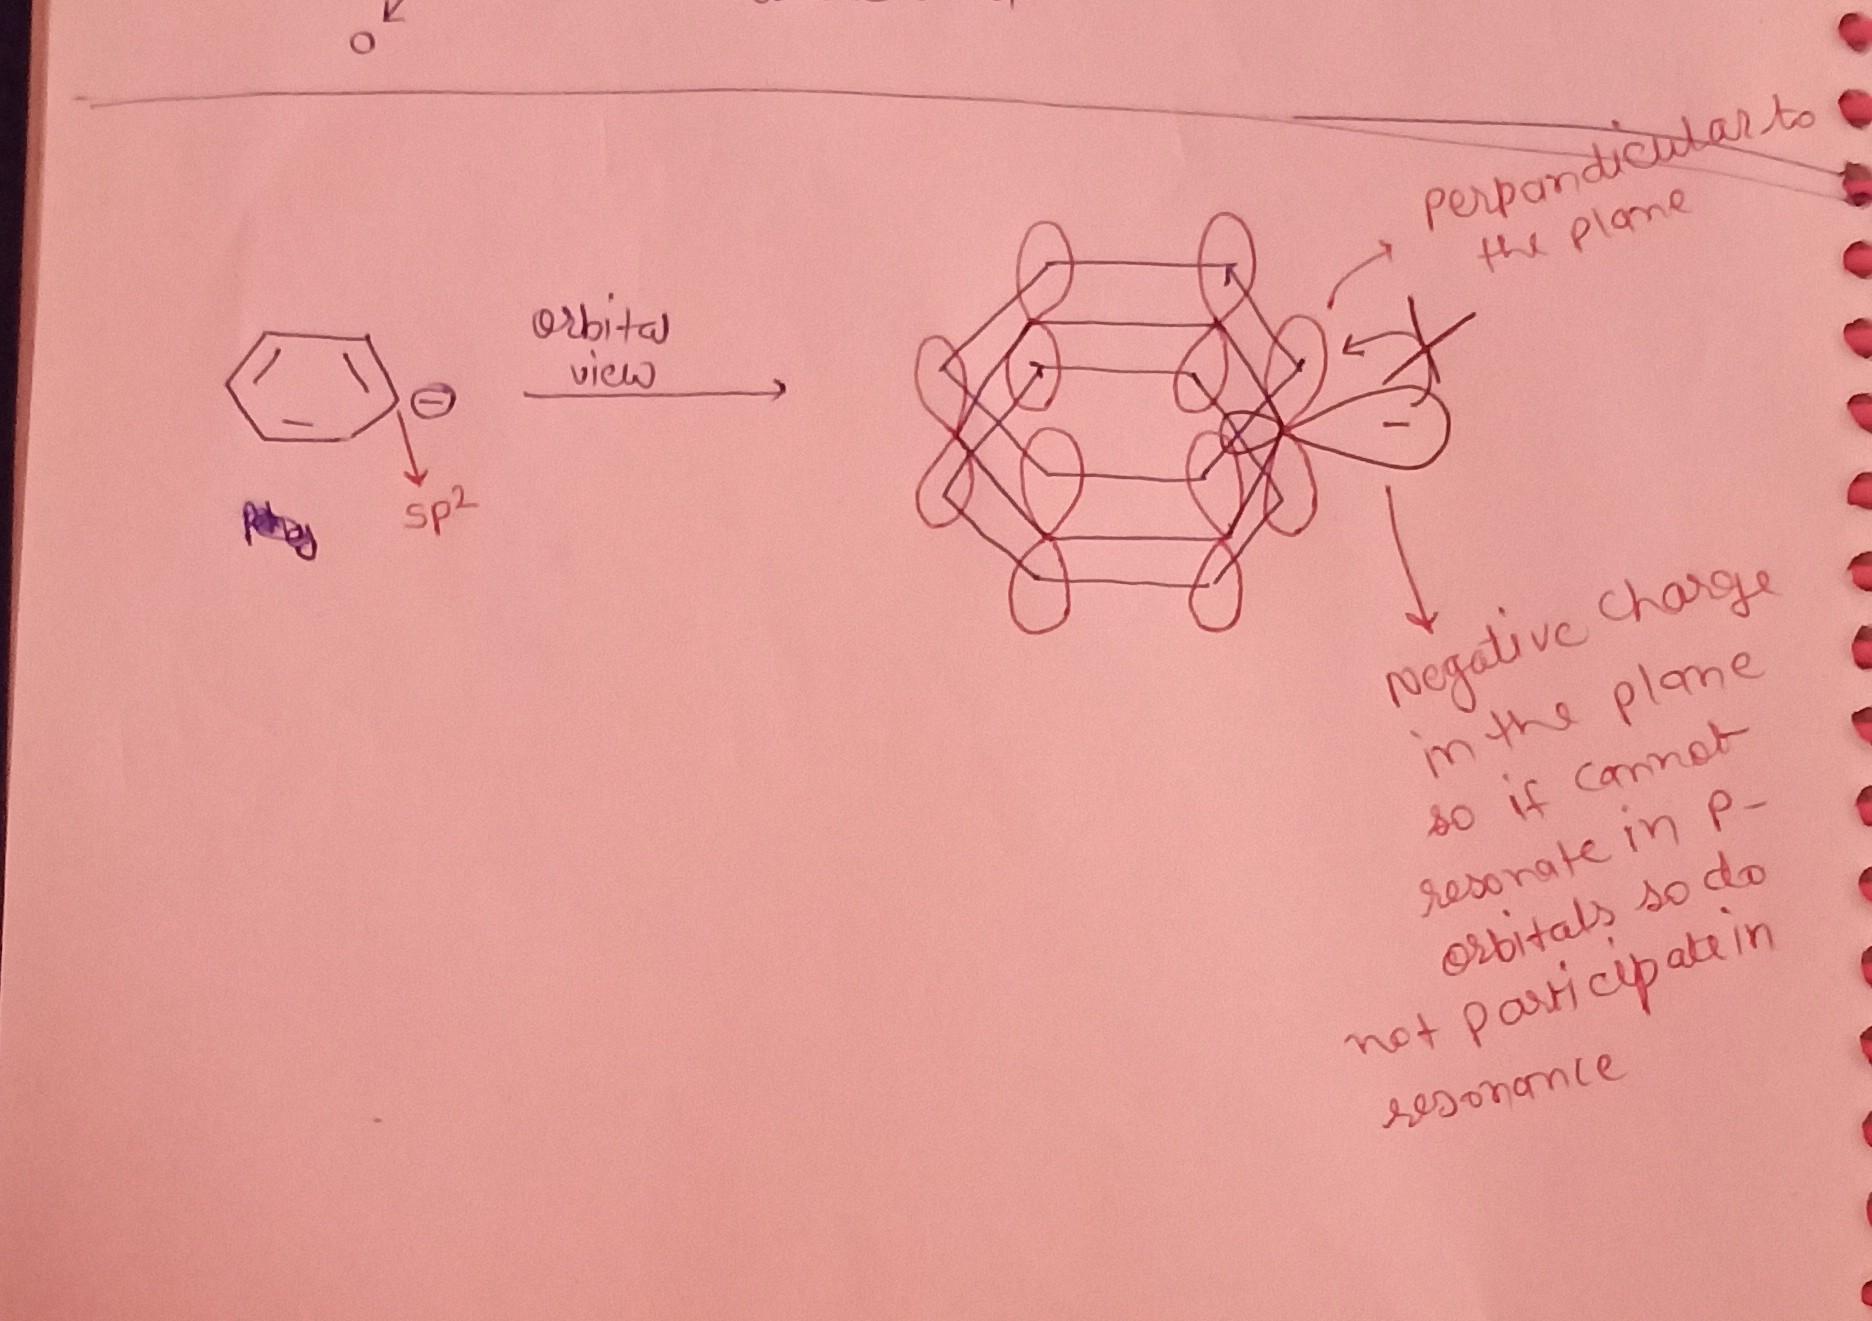 O
orbital
view
⊖
sp²
perpandicular to
the plane
-
Negative charge
in the plane
so if cannot
resonate in p-
orbitals so do
not participate in
resonance